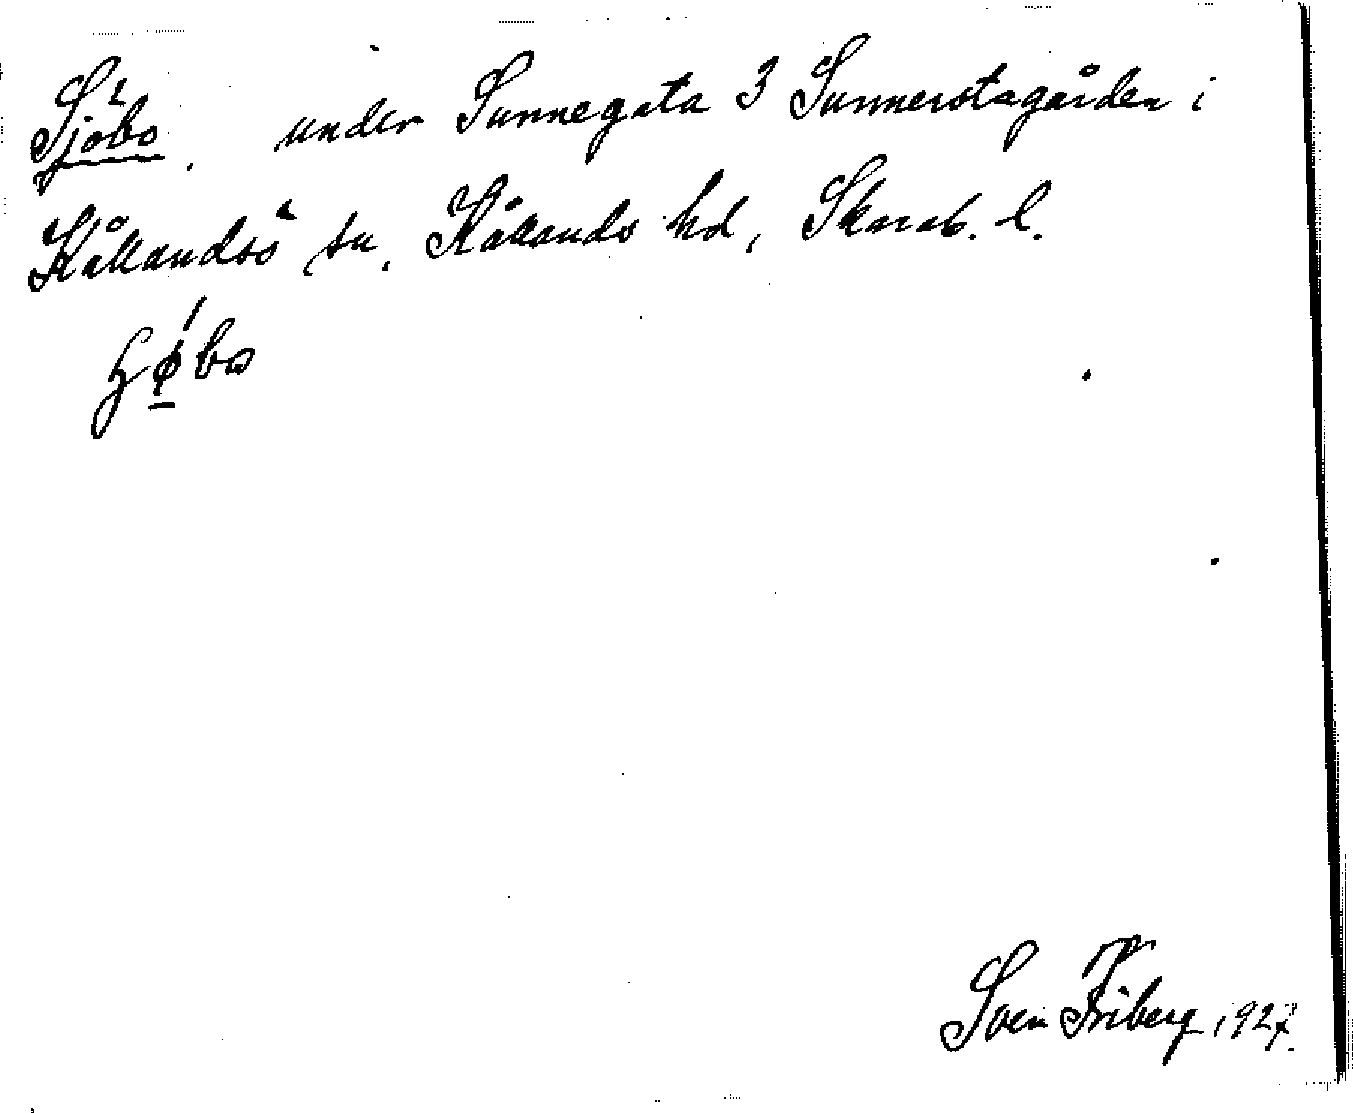 Sjöbo, under Sunnegata 3 Sunnerstagården i
Kållandsö sn, Kållands hd, Skarab. l.
bo
Sven Friberg, 1927.